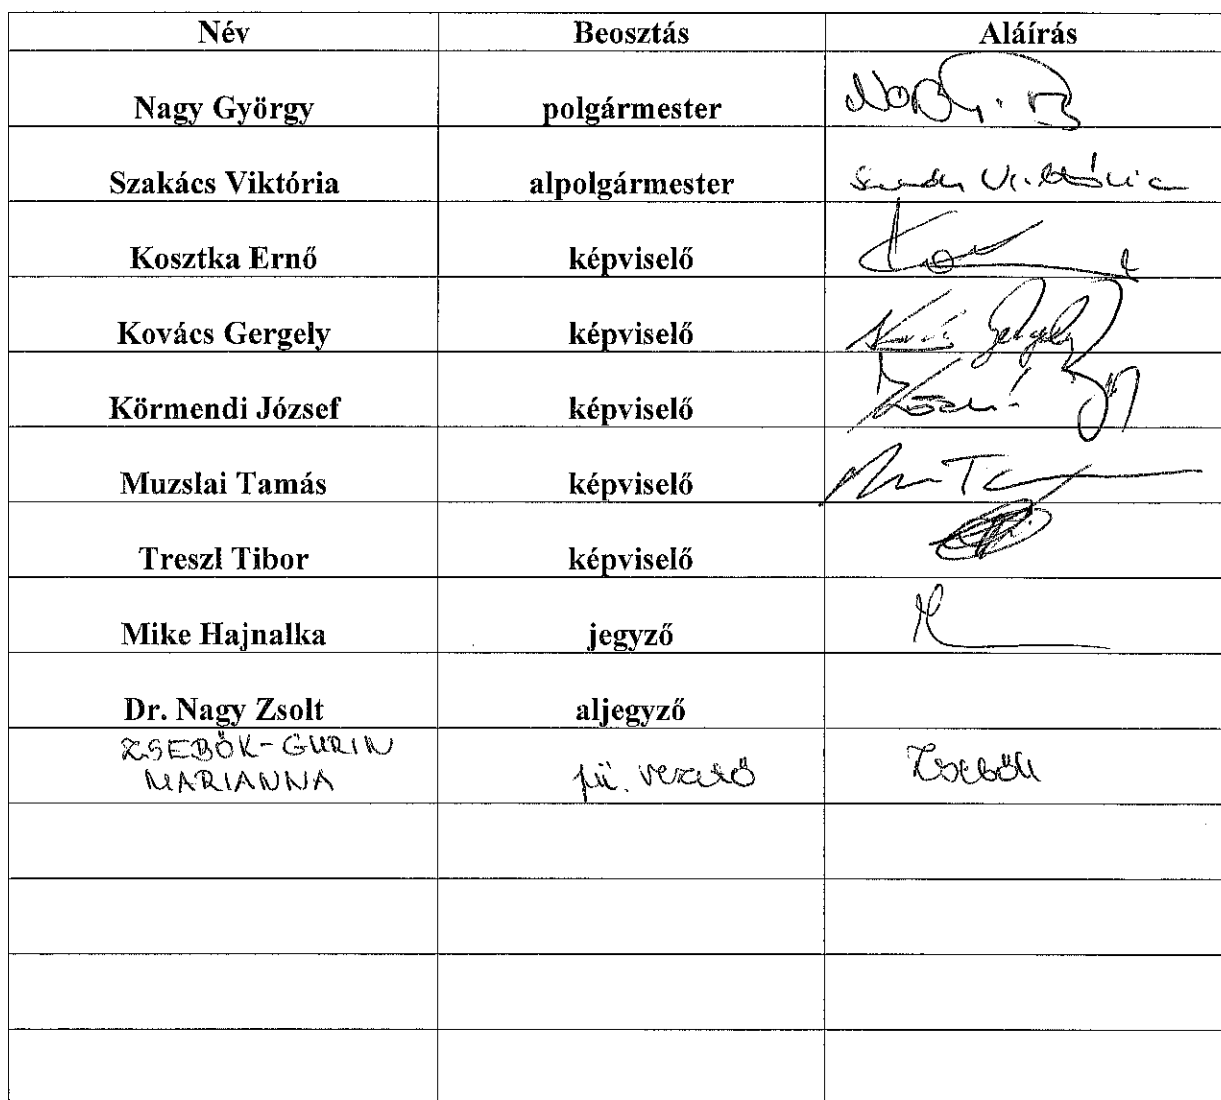 Név Beosztás Aláírás
Nagy György polgármester
Szakács Viktória alpolgármester Viktória
Kosztka Ernő képviselő
Kovács Gergely képviselő Kovács Gergely
Körmendi József képviselő
Muzslai Tamás képviselő
Treszl Tibor képviselő
Mike Hajnalka jegyző
Dr. Nagy Zsolt aljegyző
ZSEBŐK-GURIN
MARIANNA pü. vezető Zsebők